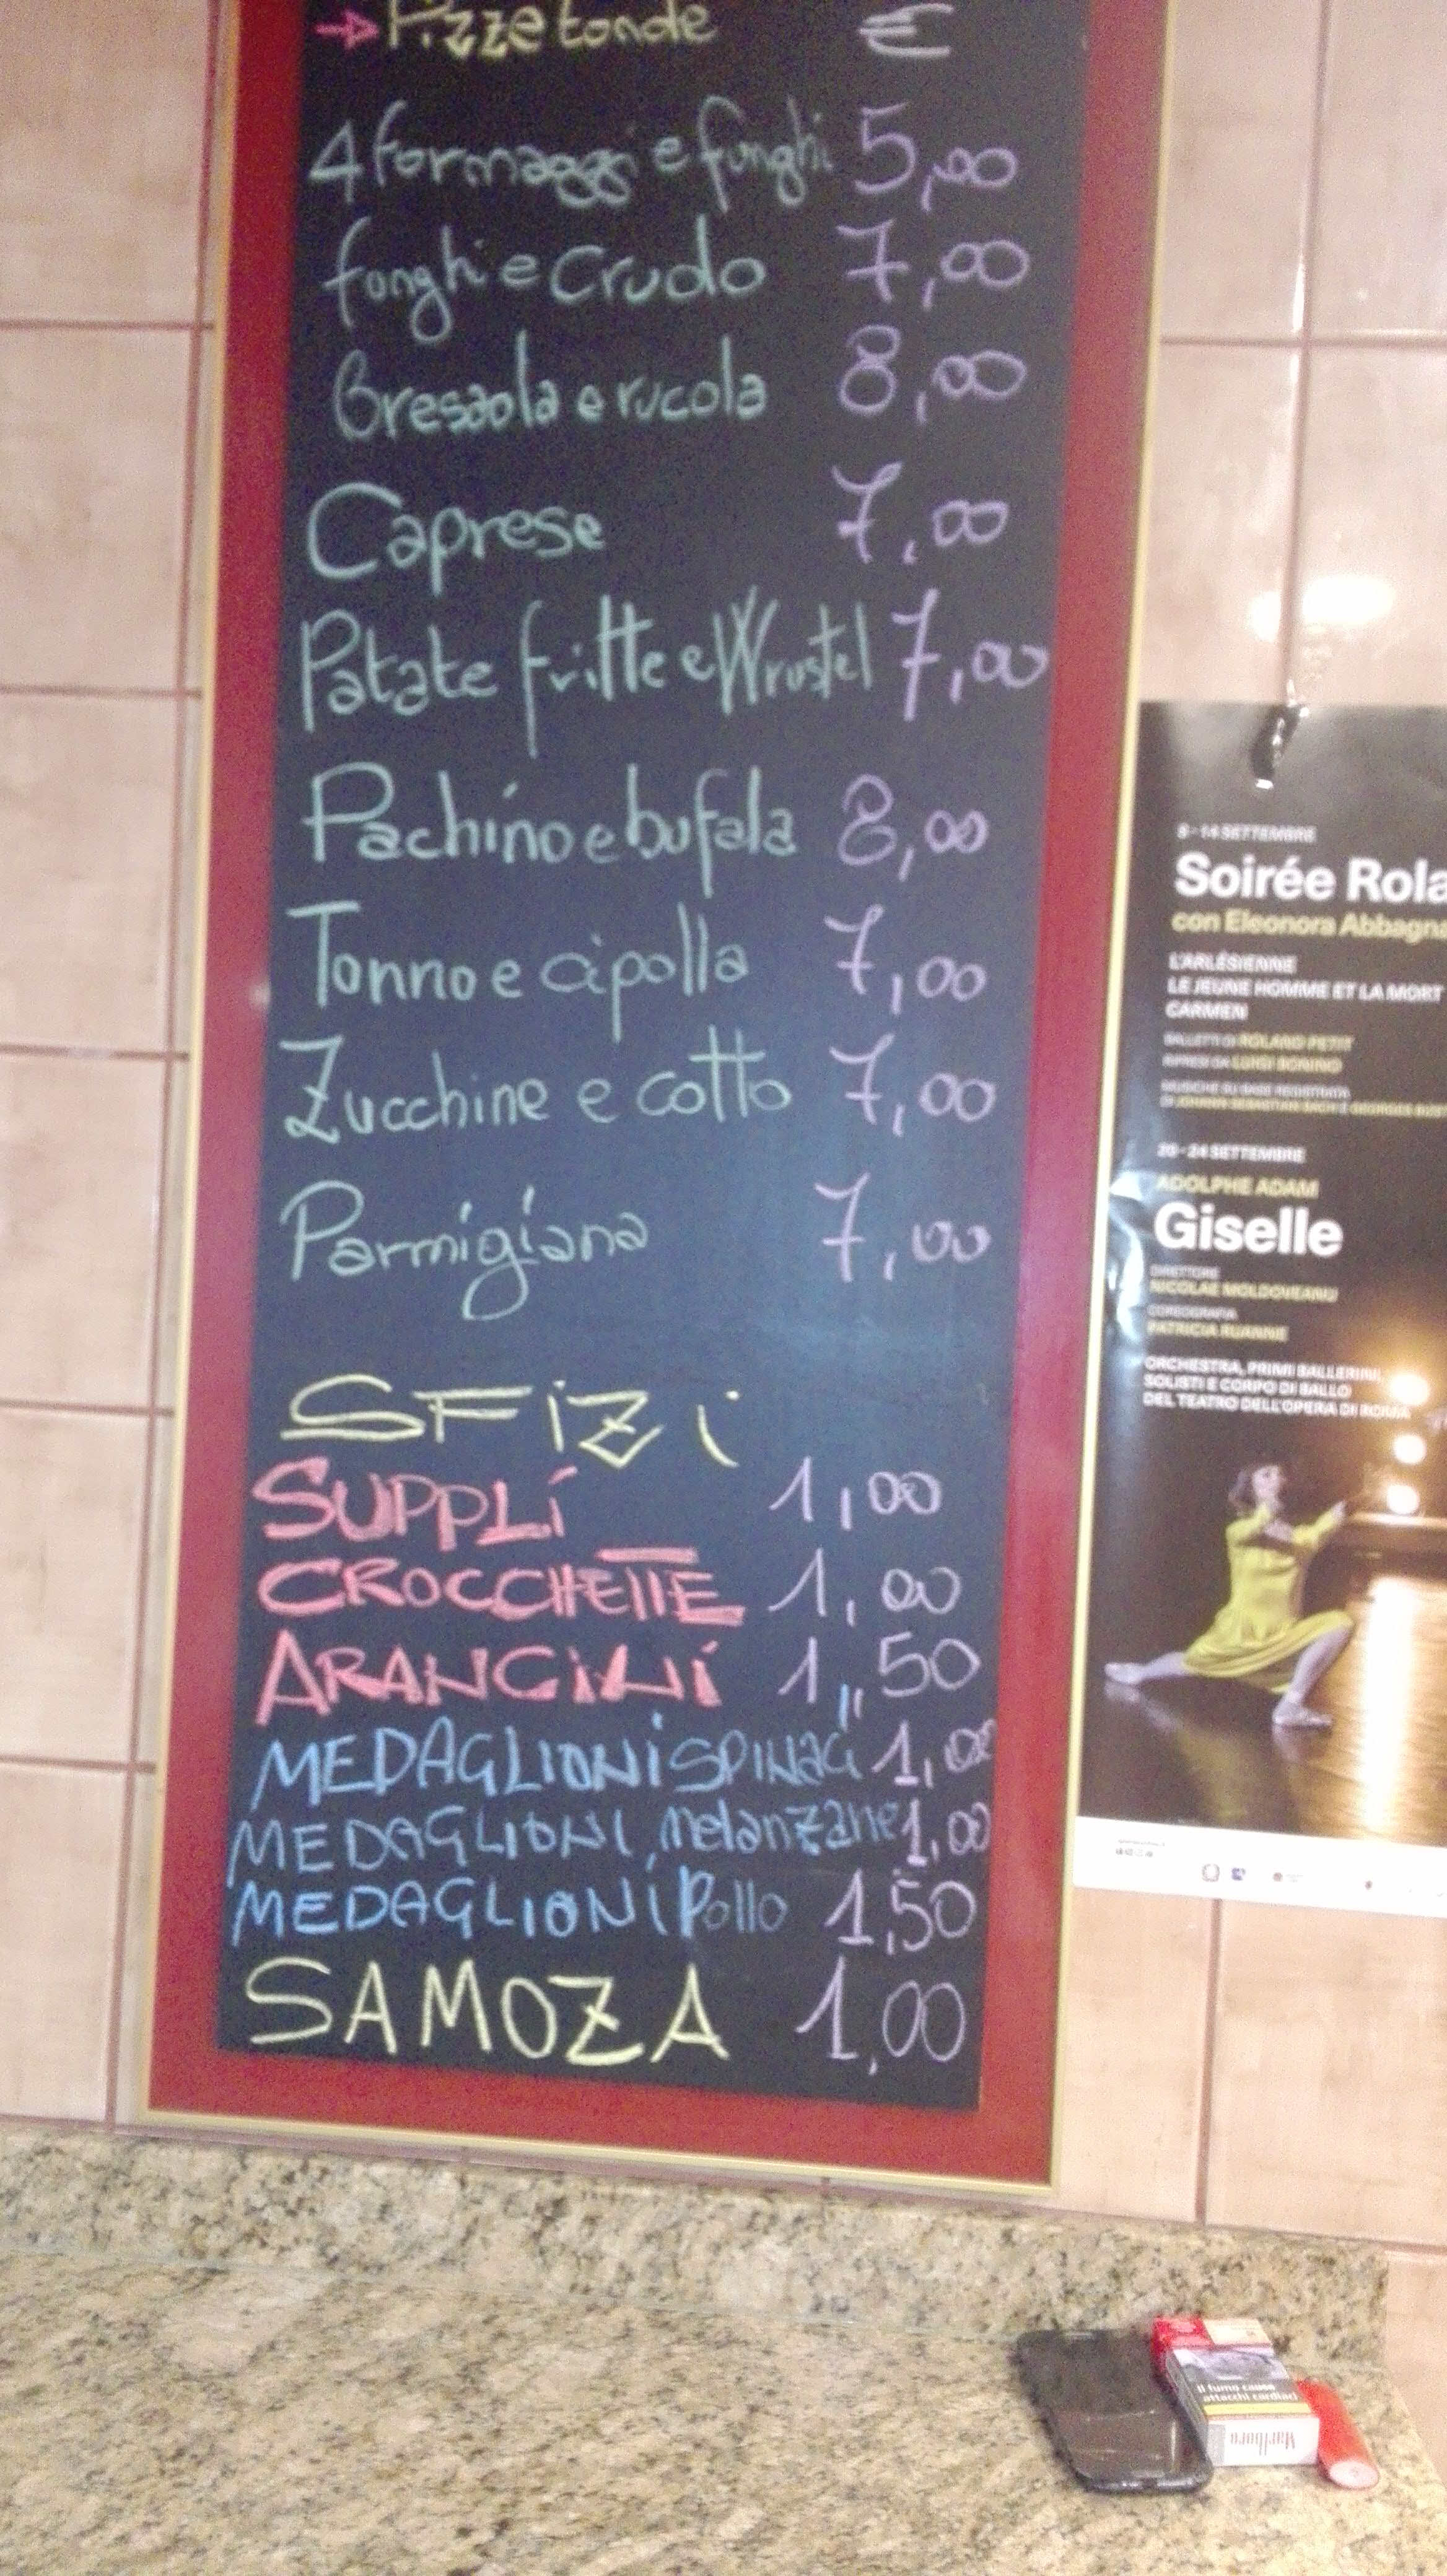 → Pizze tonde €
4 formaggi e funghi 5,00
funghi e Crudo 7,00
Bresaola e rucola 8,00
Caprese 7,00
Patate fritte e Wrustel 7,00
Pachino e bufala 8,00
Tonno e cipolla 7,00
Zucchine e cotto 7,00
Parmigiana 7,00
SFiZi
SUPPLí 1,00
CROCCHETTE 1,00
ARANCiNi 1,50
MEDAGLIONi SPINACi 1,00
MEDAGLIONI melanzane 1,00
MEDAGLIONi Pollo 1,50
SAMOZA 1,00
8 - 14 SETTEMBRE
Soirée Rola
con Eleonora Abbagna
L'ARLÉSIENNE
LE JEUNE HOMME ET LA MORT
CARMEN
BALLETTI DI ROLAND PETIT
RIPRESI DA LUIGI BONINO
MUSICHE SU BASE REGISTRATA
DI JOHANN SEBASTIAN BACH E GEORGES BIZET
20 - 24 SETTEMBRE
ADOLPHE ADAM
Giselle
DIRETTORE
NICOLAE MOLDOVEANU
COREOGRAFIA
PATRICIA RUANNE
ORCHESTRA, PRIMI BALLERINI,
SOLISTI E CORPO DI BALLO
DEL TEATRO DELL'OPERA DI ROMA
Il fumo causa
attacchi cardiaci
Marlboro